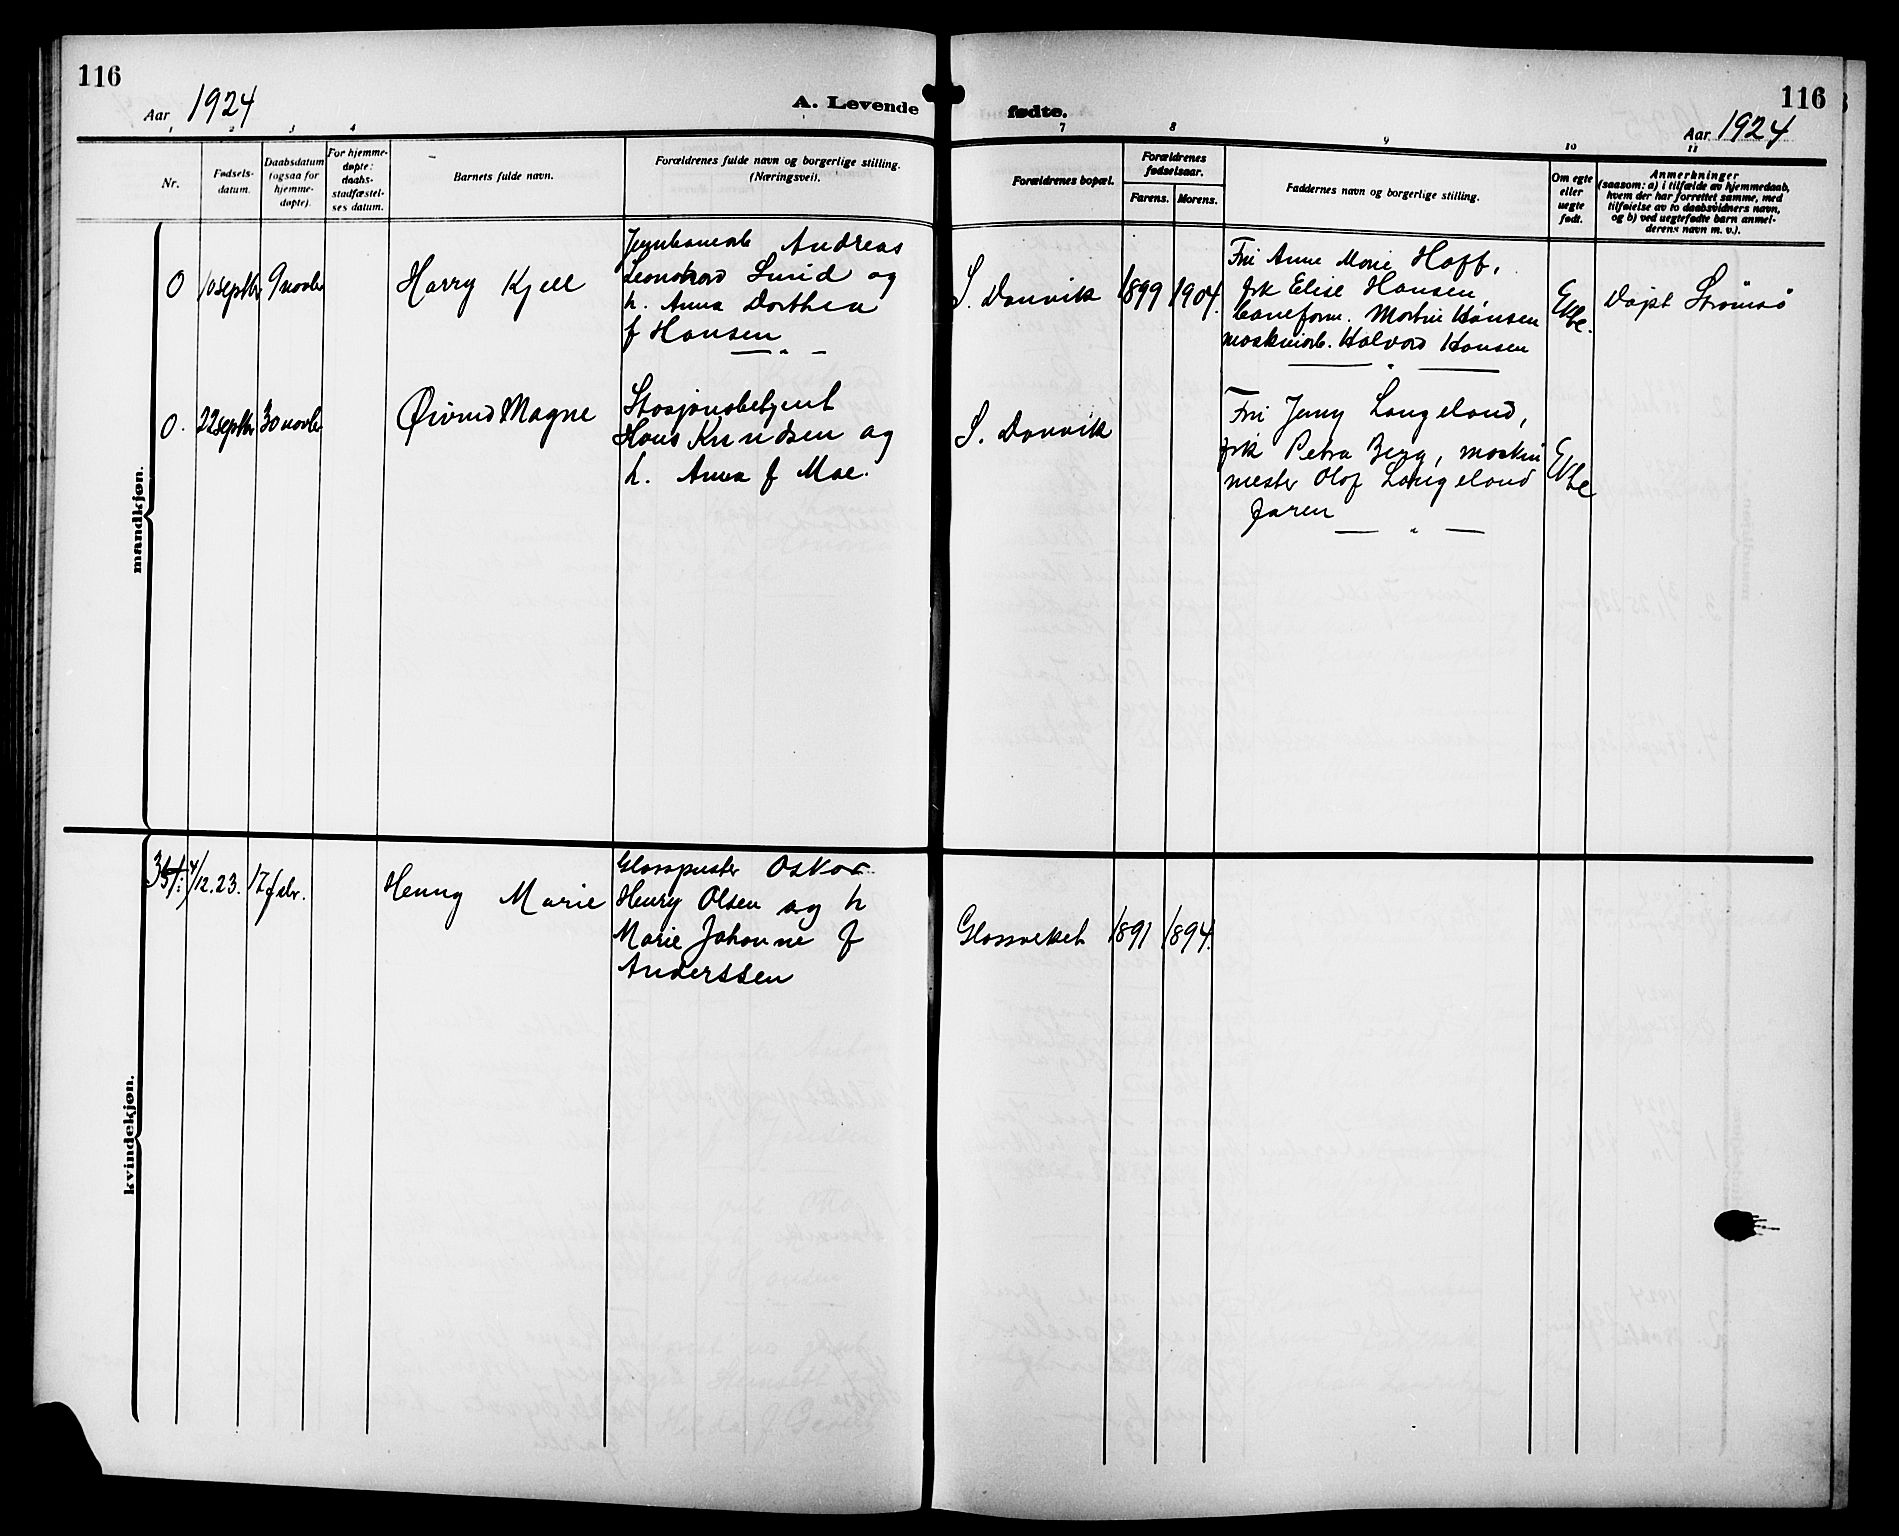 116
Aar 1924
A. Levende
1 2 3 4
Nr.
Fødsels-
datum.
Daabsdatum
(ogsaa for
hjemme-
døpte).
For hjemme-
døpte:
daabs-
stadfæstel-
ses datum.
Barnets fulde navn.
Forældrenes fulde navn og borgerlige stilling.
(Næringsvei).
mandkjøn.
0 10 septbr 9 novbr Harry Kjell
Jernbanearb Andreas
Leonhard Smid og
h. Anna Dorthea
f Hansen
0. 22 septbr 30 novbr Øivind Magne
Stasjonsbetjent
Hans Knudsen og
h. Anna f Moe.
kvindekjøn.
12.23. 17 febr. Henny Marie
Glasspuster Oskar
Henry Olsen og h
Marie Johanne f
Anderssen
fødte.
116
Aar 1924
7 8 9 10 11
Forældrenes bopæl.
Forældrenes
fødselsaar.
Farens. Morens.
Faddernes navn og borgerlige stilling.
Om egte
eller
uegte
født.
Anmerkninger
(saasom: a) i tilfælde av hjemmedaab,
hvem der har forrettet samme, med
tilføielse av to daabsvidners navn,
og b) ved uegtefødte barn anmel-
derens navn m. v.).
S. Danvik 1899 1904.
Fru Anne Marie Hoff,
frk Elise Hansen,
baneform. Martin Hansen
maskinarb. Halvard Hansen
Egte.
Døpt Strømsø
S. Danvik
Fru Jenny Langeland,
frk Petra Berg, maskin
mester Olaf Langeland
faren
Egte
Glassverket 1891 1894.